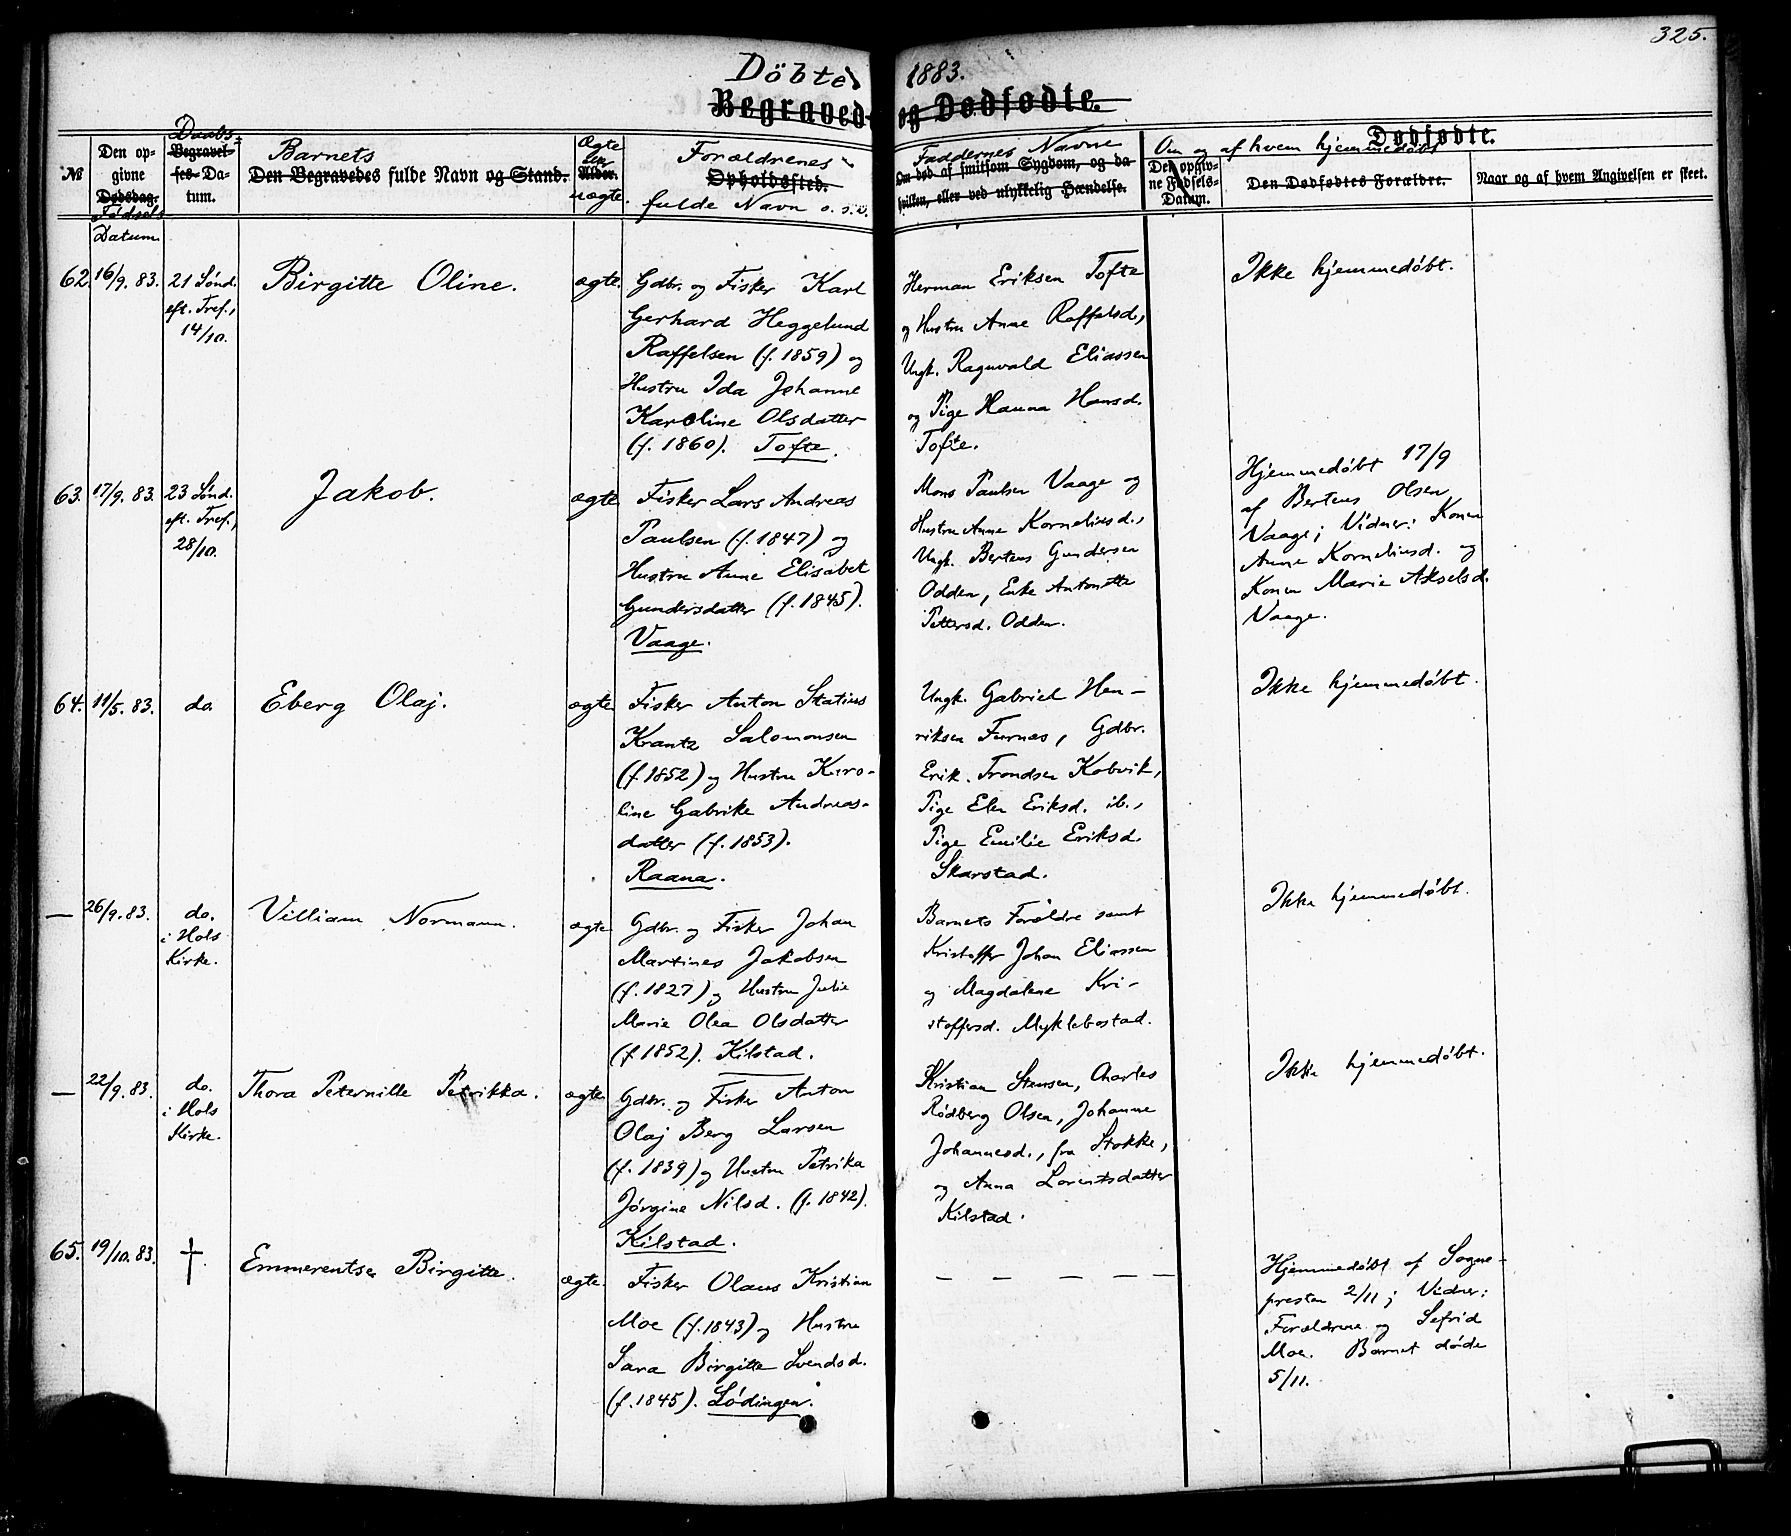 325.
Döbte 1883.
Begravede og Dødfødte.
Dødfødte.
№
Den opgivne Dødsdag.
Fødsels Datum.
Daabs-
Begravelses-Datum.
Barnets
Den Begravedes fulde Navn og Stand.
Ægte
eller
Alder.
uægte.
Forældrenes
Opholdssted.
fulde Navn o. s. v.
Faddernes Navne
Om død af smitsom Sygdom, og da
hvilken, eller ved ulykkelig Hændelse.
Om og af hvem hjemmedøbt
Den opgivne Fødsels-Datum.
Den Dødfødtes Forældre.
Naar og af hvem Angivelsen er skeet.
62. 16/9. 83.
21 Sønd.
eft. Tref.,
14/10.
Birgitte Oline.
ægte.
Gdbr. og Fisker Karl
Gerhard Heggelund
Raffelsen (f. 1859) og
Hustru Ida Johanne
Karoline Olsdatter
(f. 1860). Tofte.
Herman Eriksen Tofte
og Hustru Anne Raffelsd.,
Ungk. Ragnvald Eliassen
og Pige Hanna Hansd.
Tofte.
Ikke hjemmedøbt.
63. 17/9. 83.
23 Sønd.
eft. Tref.,
28/10.
Jakob.
ægte
Fisker Lars Andreas
Paulsen (f. 1847) og
Hustru Anne Elisabet
Gundersdatter (f. 1845).
Vaage.
Mons Paulsen Vaage og
Hustru Anne Korneliusd.,
Ungk. Berteus Gundersen
Odden, Enke Antonette
Pettersd. Odden.
Hjemmedøbt 17/9
af Berteus Olsen
Vaage; Vidner: Konen
Anne Korneliusd. og
Konen Marie Akselsd.
Vaage.
64. 11/5. 83.
do
Eberg Olaj.
ægte
Fisker Anton Statius
Krantz Salomonsen
(f. 1852) og Hustru Karo-
line Gabrike Andreas-
datter (f. 1853).
Raana.
Ungk. Gabriel Hen-
riksen Furnæs, Gdbr.
Erik. Trondsen Kobvik,
Pige Elen Eriksd. ib.,
Pige Emilie Eriksd.
Skarstad.
Ikke hjemmedøbt.
— 26/9. 83.
do.
i Hols
Kirke.
Villiam Normann.
ægte
Gdbr. og Fisker Johan
Martines Jakobsen
(f. 1827) og Hustru Julie
Marie Olea Olsdatter
(f. 1852). Kilstad.
Barnets Forældre samt
Kristoffer Johan Eliassen
og Magdalene Kri-
stoffersd. Myklebostad.
Ikke hjemmedøbt.
— 22/9. 83.
do.
i Hols
Kirke.
Thora Peternille Petrikka.
ægte
Gdbr. og Fisker Anton
Olaj Berg Larsen
(f. 1839) og Hustru Petrika
Jørgine Nilsd. (f. 1842).
Kilstad.
Kristian Stensen, Charles
Rødberg Olsen, Johanne
Johannesd., fra Stokke,
og Anna Lorentsdatter
Kilstad.
Ikke hjemmedøbt.
65. 19/10. 83.
†.
Emmerentse Birgitte.
ægte.
Fisker Olaus Kristian
Moe (f. 1843) og Hustru
Sara Birgitte Svendsd.
(f. 1845). Lødingen.
— — — — —
Hjemmedøbt af Sogne-
presten 2/11; Vidner:
Forældrene og Sefrid
Moe. Barnet døde
5/11.